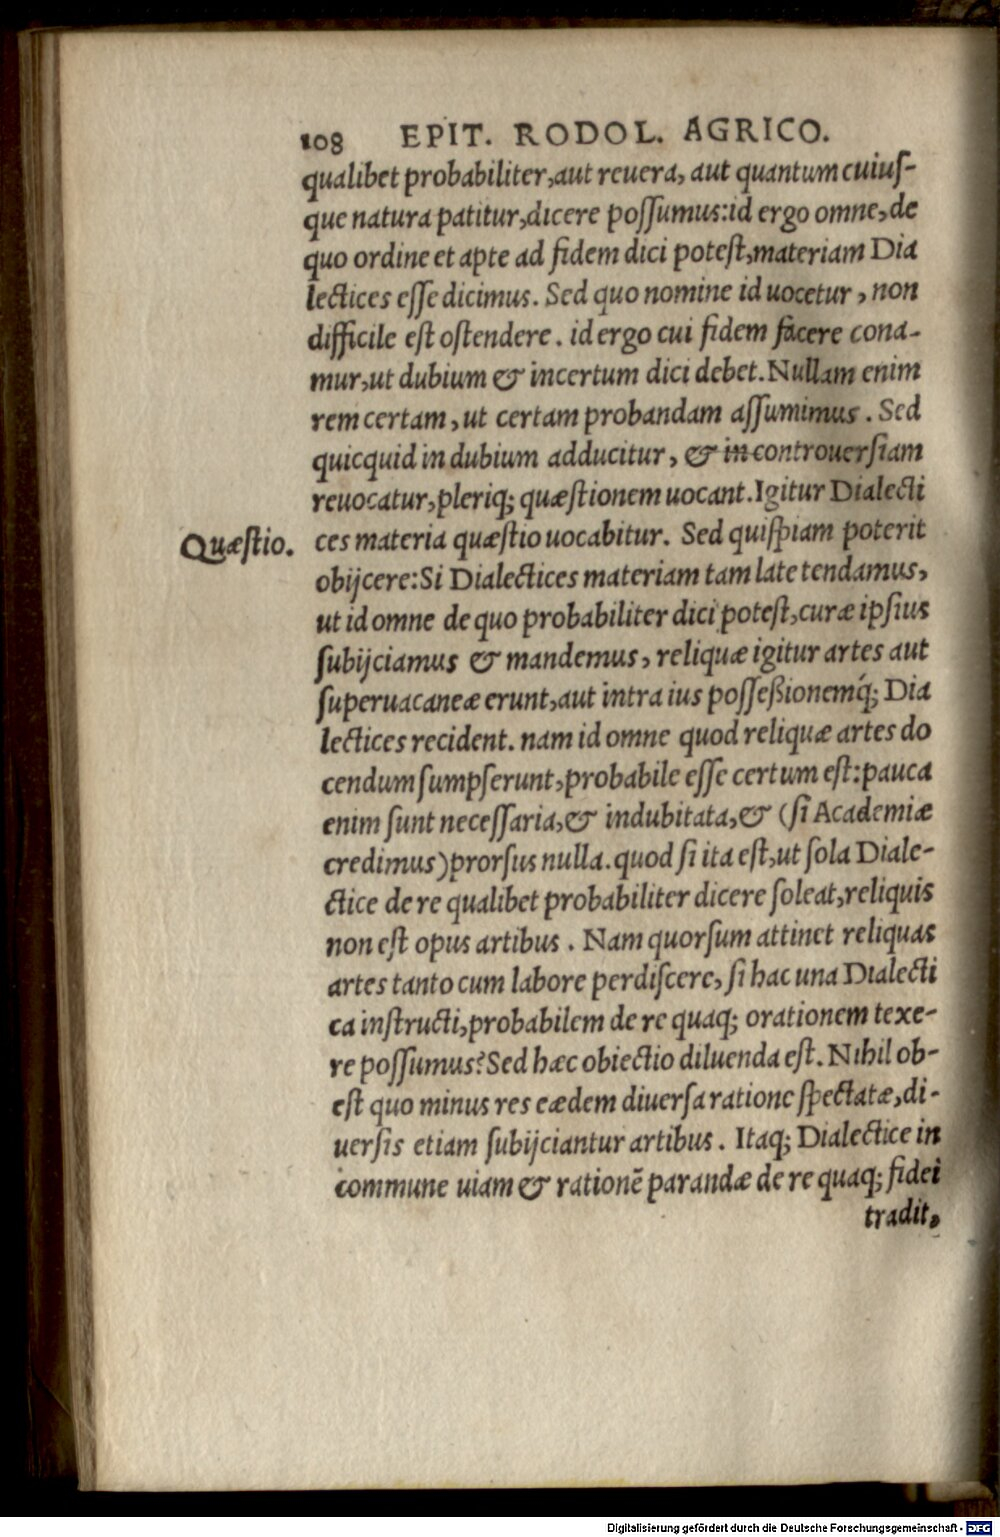 108 EPIT. RODOL. AGRICO.
qualibet probabiliter, aut reuera, aut quantum cuiuſ-
que natura patitur, dicere poſſumus: id ergo omne, de
quo ordine et apte ad fidem dici poteſt, materiam Dia
lectices eſſe dicimus. Sed quo nomine id uocetur, non
difficile eſt oſtendere. id ergo cui fidem facere cona-
mur, ut dubium & incertum dici debet. Nullam enim
rem certam, ut certam probandam aſſumimus. Sed
quicquid in dubium adducitur, & in controuerſiam
reuocatur, pleriq; quæſtionem uocant. Igitur Dialecti
Quæſtio.
ces materia quæſtio uocabitur. Sed quiſpiam poterit
obijcere: Si Dialectices materiam tam late tendamus,
ut id omne de quo probabiliter dici poteſt, curæ ipſius
ſubijciamus & mandemus, reliquæ igitur artes aut
ſuperuacaneæ erunt, aut intra ius poſſeßionemq́; Dia
lectices recident. nam id omne quod reliquæ artes do
cendum ſumpſerunt, probabile eſſe certum eſt: pauca
enim ſunt neceſſaria, & indubitata, & (ſi Academiæ
credimus) prorſus nulla. quod ſi ita eſt, ut ſola Diale-
ctice de re qualibet probabiliter dicere ſoleat, reliquis
non eſt opus artibus. Nam quorſum attinet reliquas
artes tanto cum labore perdiſcere, ſi hac una Dialecti
ca inſtructi, probabilem de re quaq; orationem texe-
re poſſumus? Sed hæc obiectio diluenda eſt. Nihil ob-
eſt quo minus res eædem diuerſa ratione ſpectatæ, di-
uerſis etiam ſubijciantur artibus. Itaq; Dialectice in
commune uiam & rationẽ parandæ de re quaq; fidei
tradit,
Digitalisierung gefördert durch die Deutsche Forschungsgemeinschaft - DFG